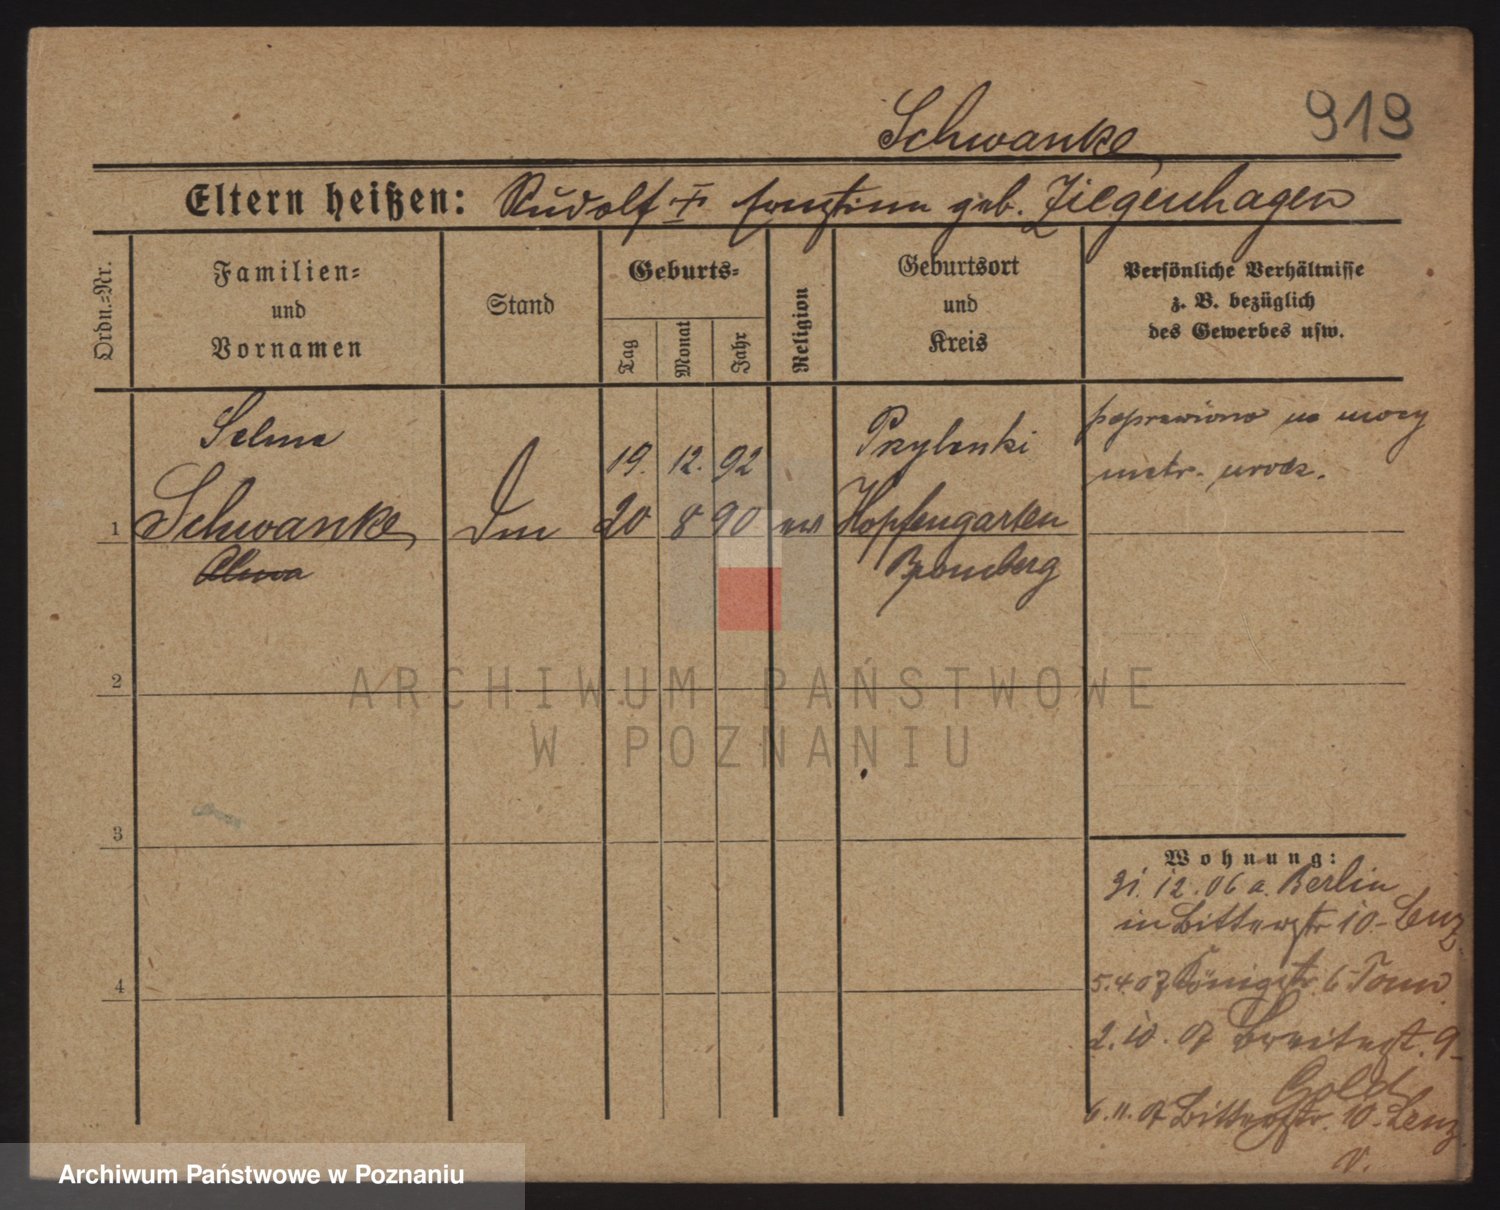 919
Schwanke
Eltern heißen: Rudolf geb. Ziegenhagen
Ordn.=Nr.
Familien=
und
Vornamen
Stand
Geburts=
Tag
Monat
Jahr
Religion
Geburtsort
und
Kreis
Persönliche Verhältnisse
z. B. bezüglich
des Gewerbes usw.
Selma
19. 12. 92
Przylenki
poprawiono na mocy
metr. urodz.
1 Schwanke 20 8 90 Hopfengarten
Bromberg
2
3
4
Wohnung:
12.06 a. Berlin
in 10 -
5.4.07 Königstr. 6
2.10.07 Breitestr. 9 -
Gold
6.11.07 10 -
v.
ARCHIWUM PAŃSTWOWE
W POZNANIU
Archiwum Państwowe w Poznaniu